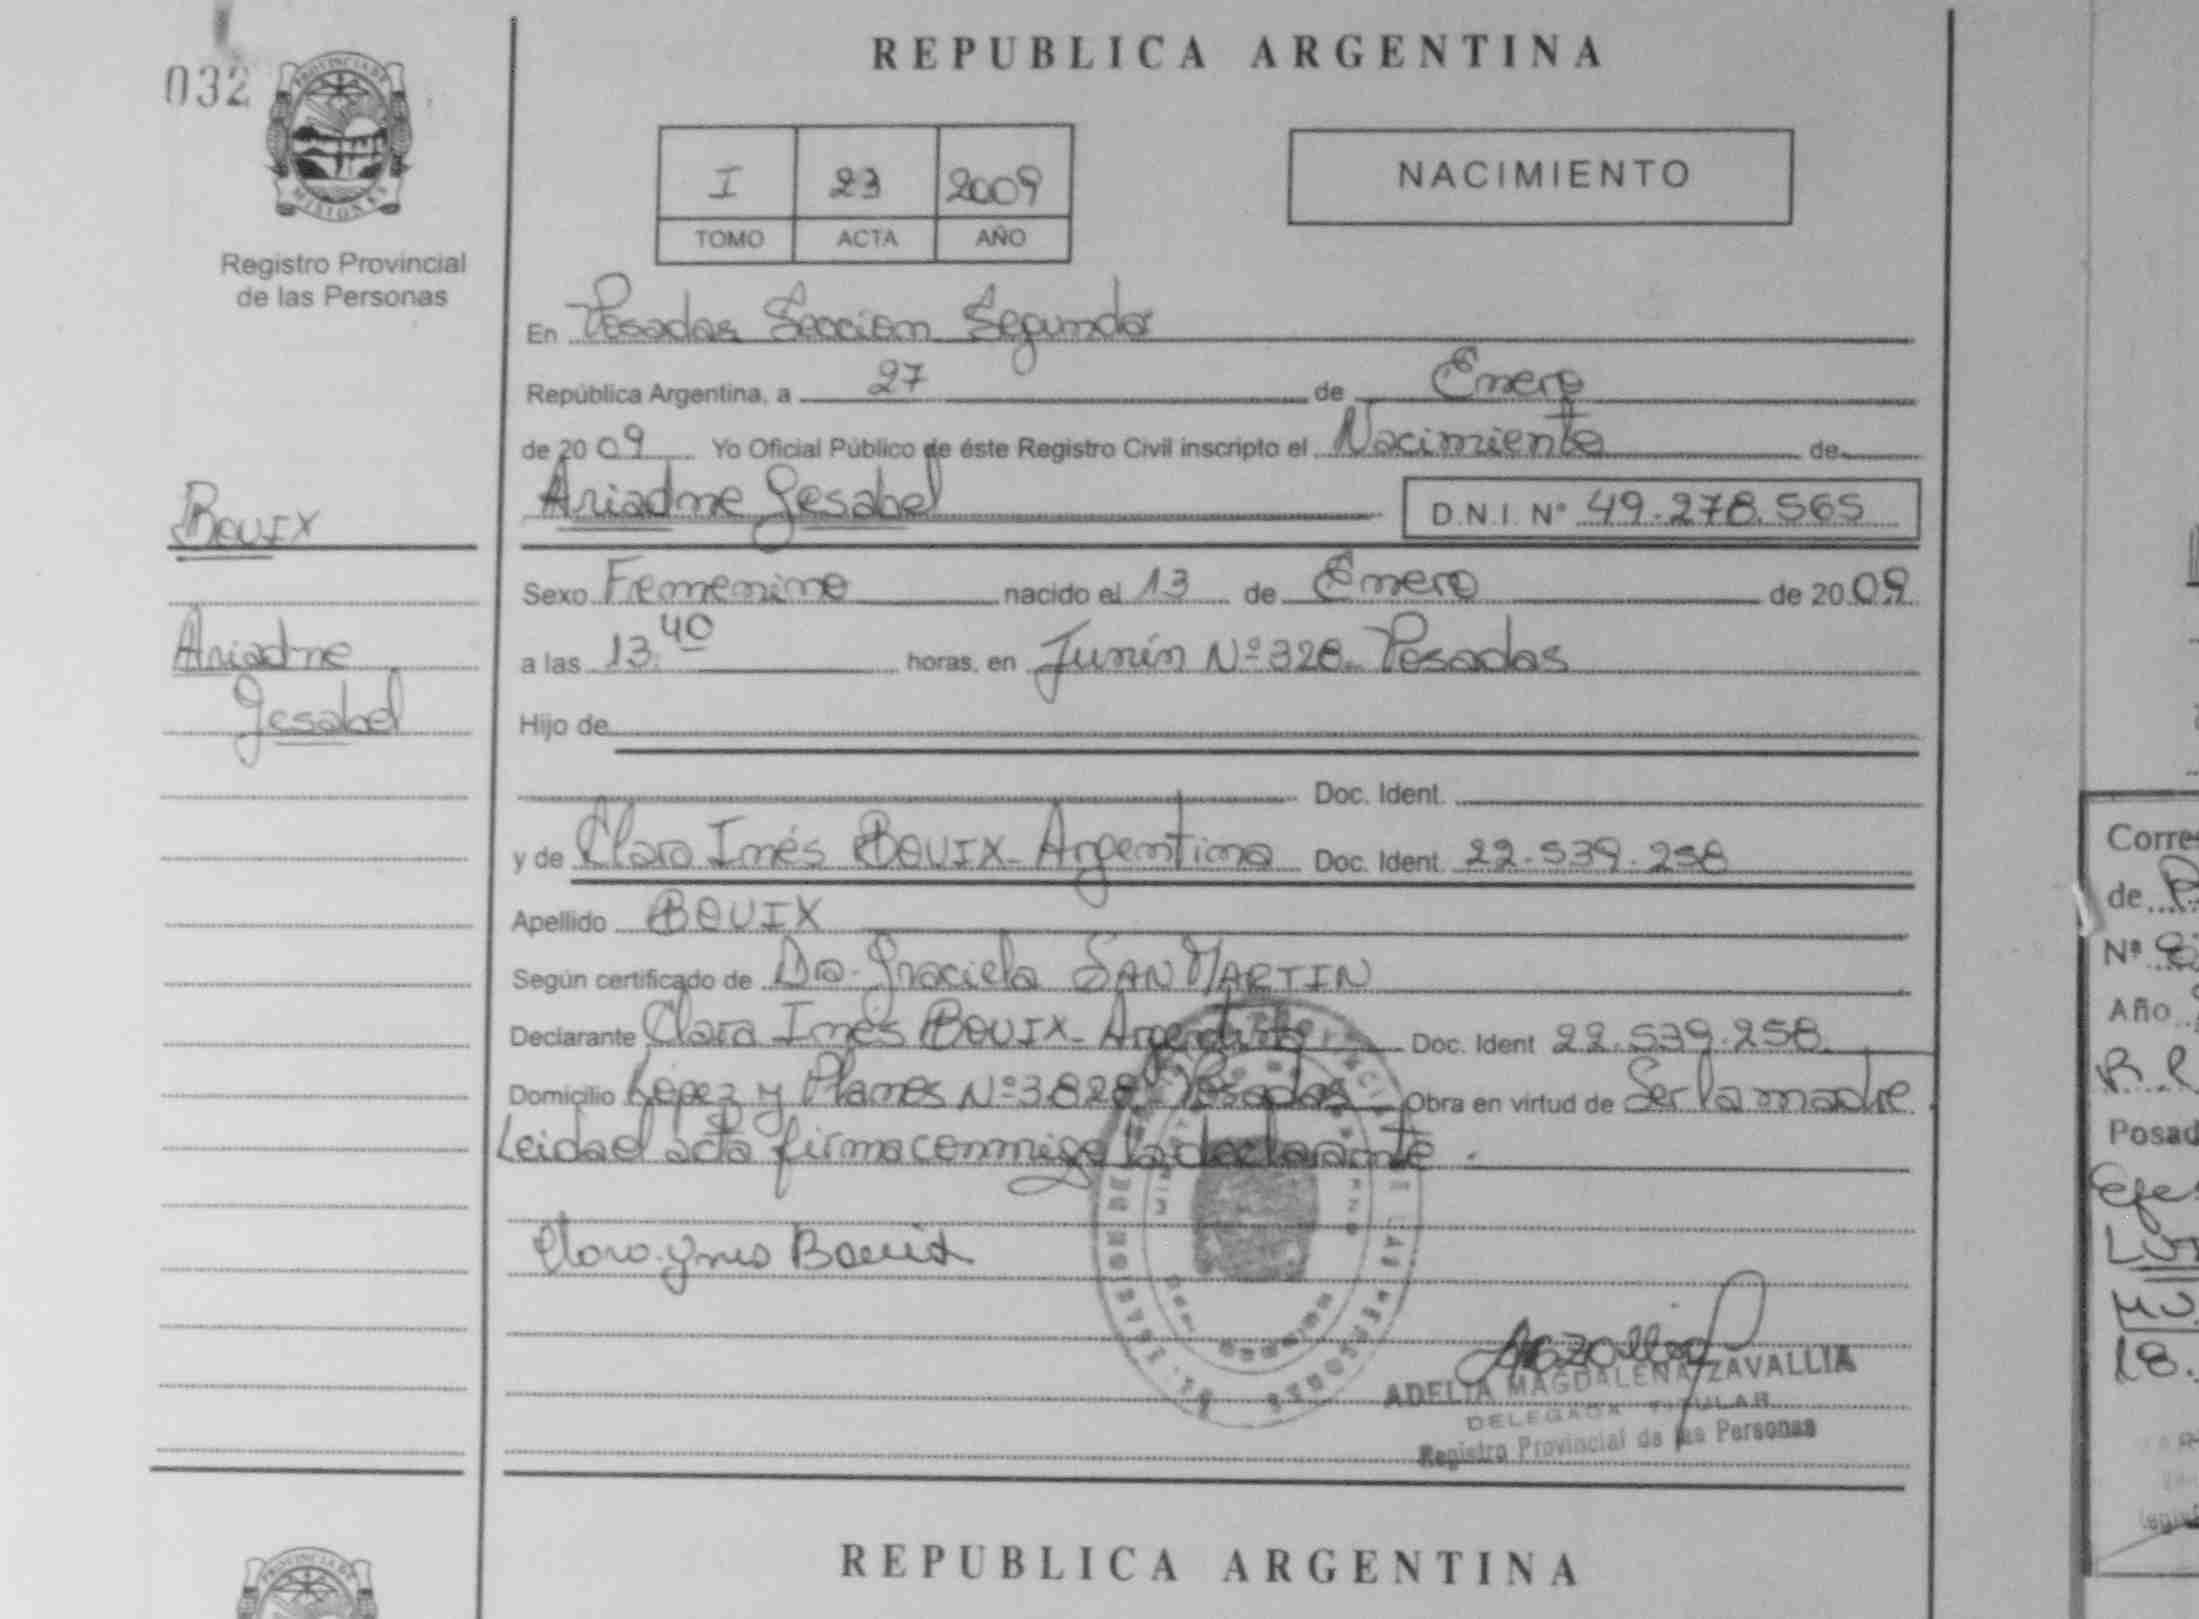 032
PROVINCIA DE
MISIONES
Registro Provincial
de las Personas
REPUBLICA ARGENTINA
I 23 2009
TOMO ACTA AÑO
NACIMIENTO
En Posadas Seccion Segunda
República Argentina, a 27 de Enero
de 20 09 Yo Oficial Público de éste Registro Civil inscripto el Nacimiento de
Ariadne Gesabel D.N.I. Nº 49.278.565
BOUIX
Sexo Femenino nacido el 13 de Enero de 20 09
Ariadne
a las 13.40 horas, en Junín Nº 328. Posadas
Gesabel
Hijo de
Doc. Ident.
y de Clara Inés BOUIX - Argentina Doc. Ident. 22.539.258
Apellido BOUIX
Según certificado de Dra. Graciela SAN MARTIN
Declarante Clara Inés BOUIX - Argentina Doc. Ident 22.539.258.
Domicilio López y Planes Nº 3828 Posadas Obra en virtud de Ser la madre.
Leida el acta firma conmigo la declarante.
Clara Ynes Bouix
ADELIA MAGDALENA ZAVALLIA
DELEGADA TITULAR
Registro Provincial de las Personas
REPUBLICA ARGENTINA
PROVINCIA DE
Corres
de
Nº
Año
Posad
18.